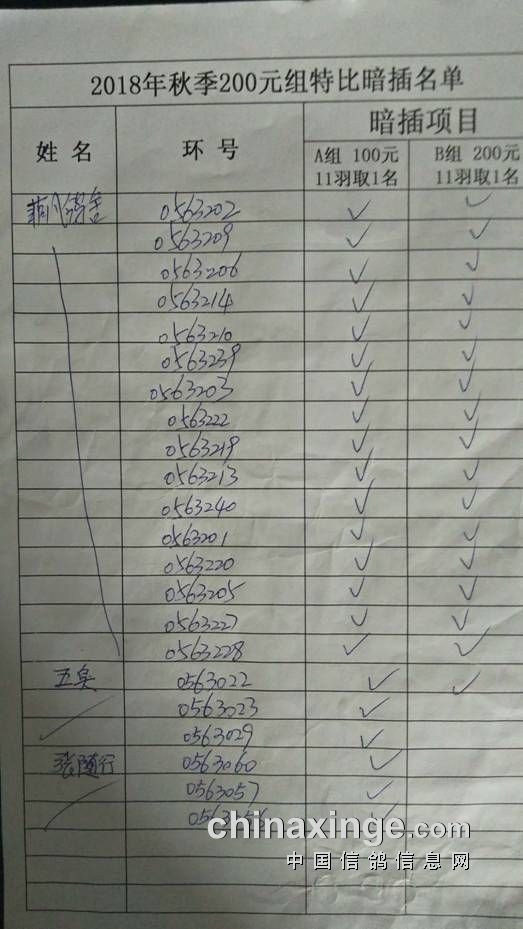 2018年秋季200元组特比暗插名单
姓 名 环 号 暗插项目
A组 100元 B组 200元
11羽取1名 11羽取1名
菲凡鸽舍 0563202 ✓ ✓
0563209 ✓ ✓
0563206 ✓ ✓
0563214 ✓ ✓
0563210 ✓ ✓
0563239 ✓ ✓
0563203 ✓ ✓
0563222 ✓ ✓
0563219 ✓ ✓
0563213 ✓ ✓
0563240 ✓ ✓
0563201 ✓ ✓
0563220 ✓ ✓
0563205 ✓ ✓
0563227 ✓ ✓
0563228 ✓ ✓
0563022 ✓ ✓
0563023 ✓
0563029 ✓
张随行 0563060 ✓
0563057 ✓
chinaxinge.com
中国信鸽信息网